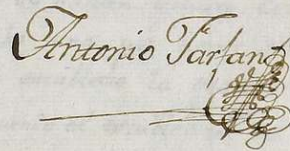 Antonio Tarfan